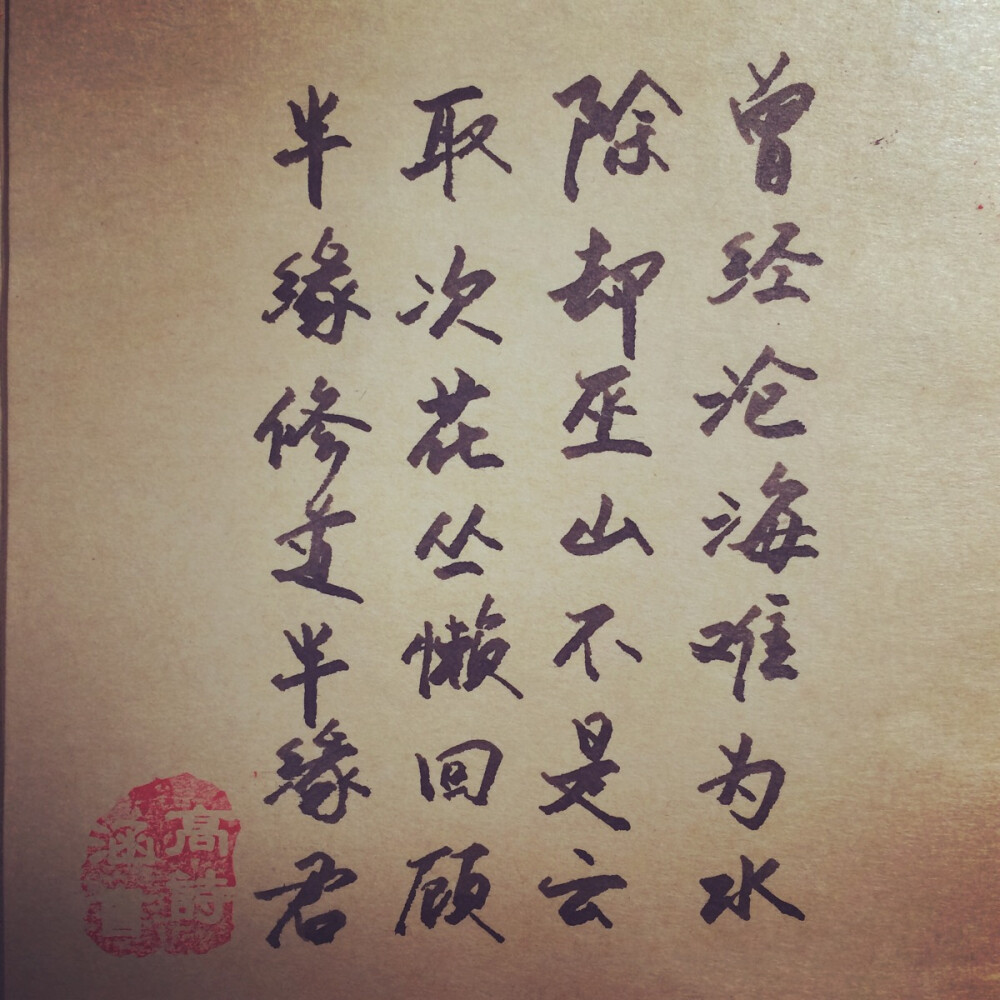 曾经沧海难为水
除却巫山不是云
取次花丛懒回顾
半缘修道半缘君